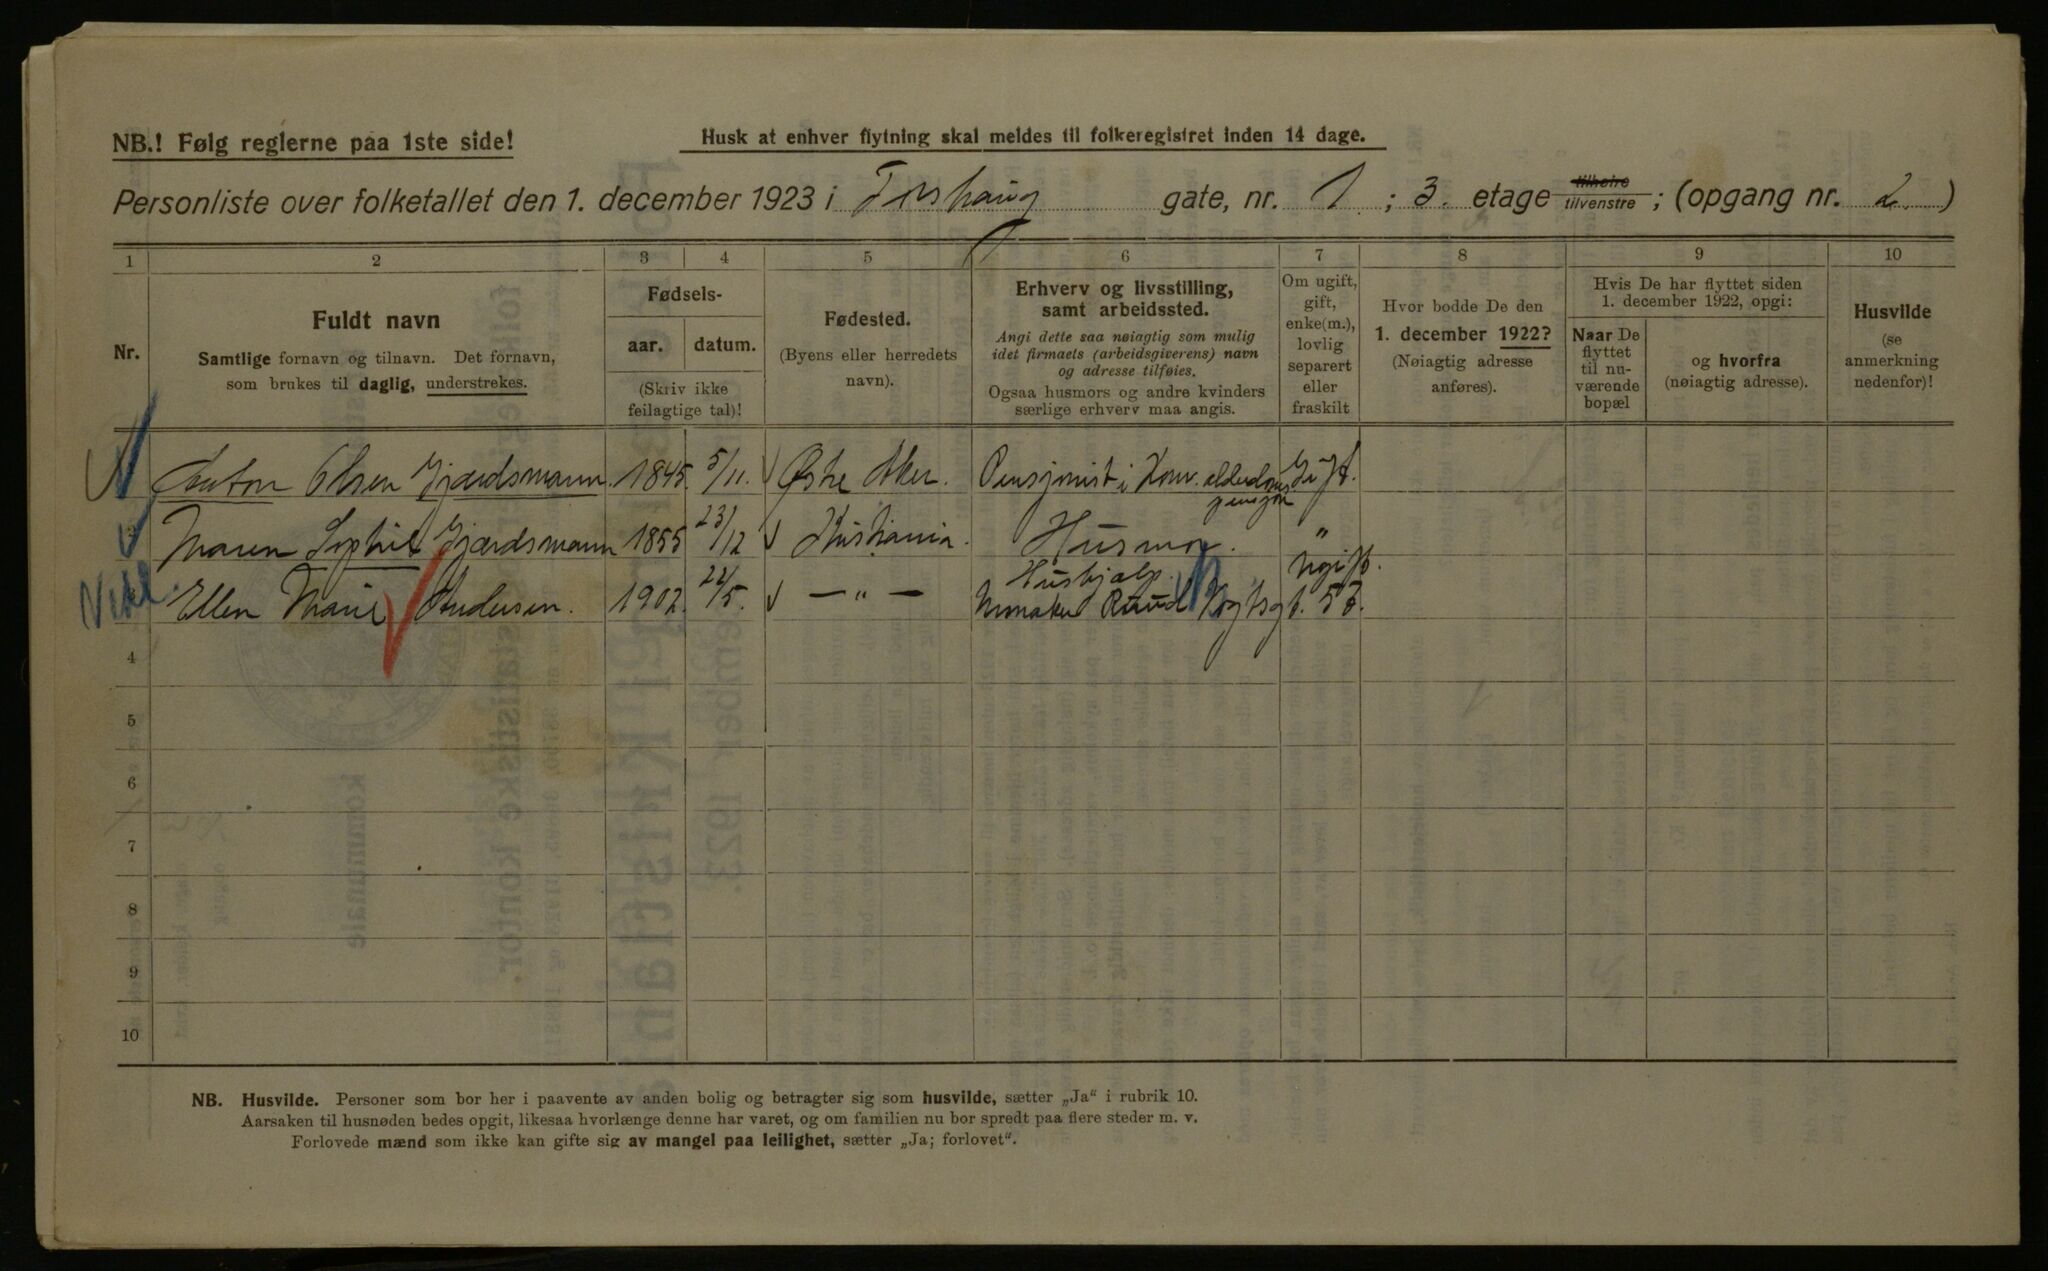 NB.! Følg reglerne paa 1ste side!
Husk at enhver flytning skal meldes til folkeregistret inden 14 dage.
Personliste over folketallet den 1. december 1923 i Torshaug gate, nr. 1 ; 3. etage tilhøire tilvenstre ; (opgang nr. 2. )
1 2 3 4 5 6 7 8 9 10
Nr.
Fuldt navn
Samtlige fornavn og tilnavn. Det fornavn,
som brukes til daglig, understrekes.
Fødsels-
aar. datum.
(Skriv ikke
feilagtige tal)!
Fødested.
(Byens eller herredets
navn).
Erhverv og livsstilling,
samt arbeidssted.
Angi dette saa nøiagtig som mulig
idet firmaets (arbeidsgiverens) navn
og adresse tilføies.
Ogsaa husmors og andre kvinders
særlige erhverv maa angis.
Om ugift,
gift,
enke(m.),
lovlig
separert
eller
fraskilt
Hvor bodde De den
1. december 1922?
(Nøiagtig adresse
anføres).
Hvis De har flyttet siden
1. december 1922, opgi:
Naar De
flyttet
til nu-
værende
bopæl
og hvorfra
(nøiagtig adresse).
Husvilde
(se
anmerkning
nedenfor)!
Anton Olsen Gjærdsmann. 1845. 5/11. Østre Aker. Pensjonist i Kom. Gift.
Maren Sophie Gjærdsmann 1855 23/12 Kristiania. Husmor. "
Ellen Marie Andersen. 1902. 22/5. — " — Hushjælp. Ugift.
Ruud Vogtsgt.
4
5
6
7
8
9
10
NB. Husvilde. Personer som bor her i paavente av anden bolig og betragter sig som husvilde, sætter „Ja" i rubrik 10.
Aarsaken til husnøden bedes opgit, likesaa hvorlænge denne har varet, og om familien nu bor spredt paa flere steder m. v.
Forlovede mænd som ikke kan gifte sig av mangel paa leilighet, sætter „Ja; forlovet".